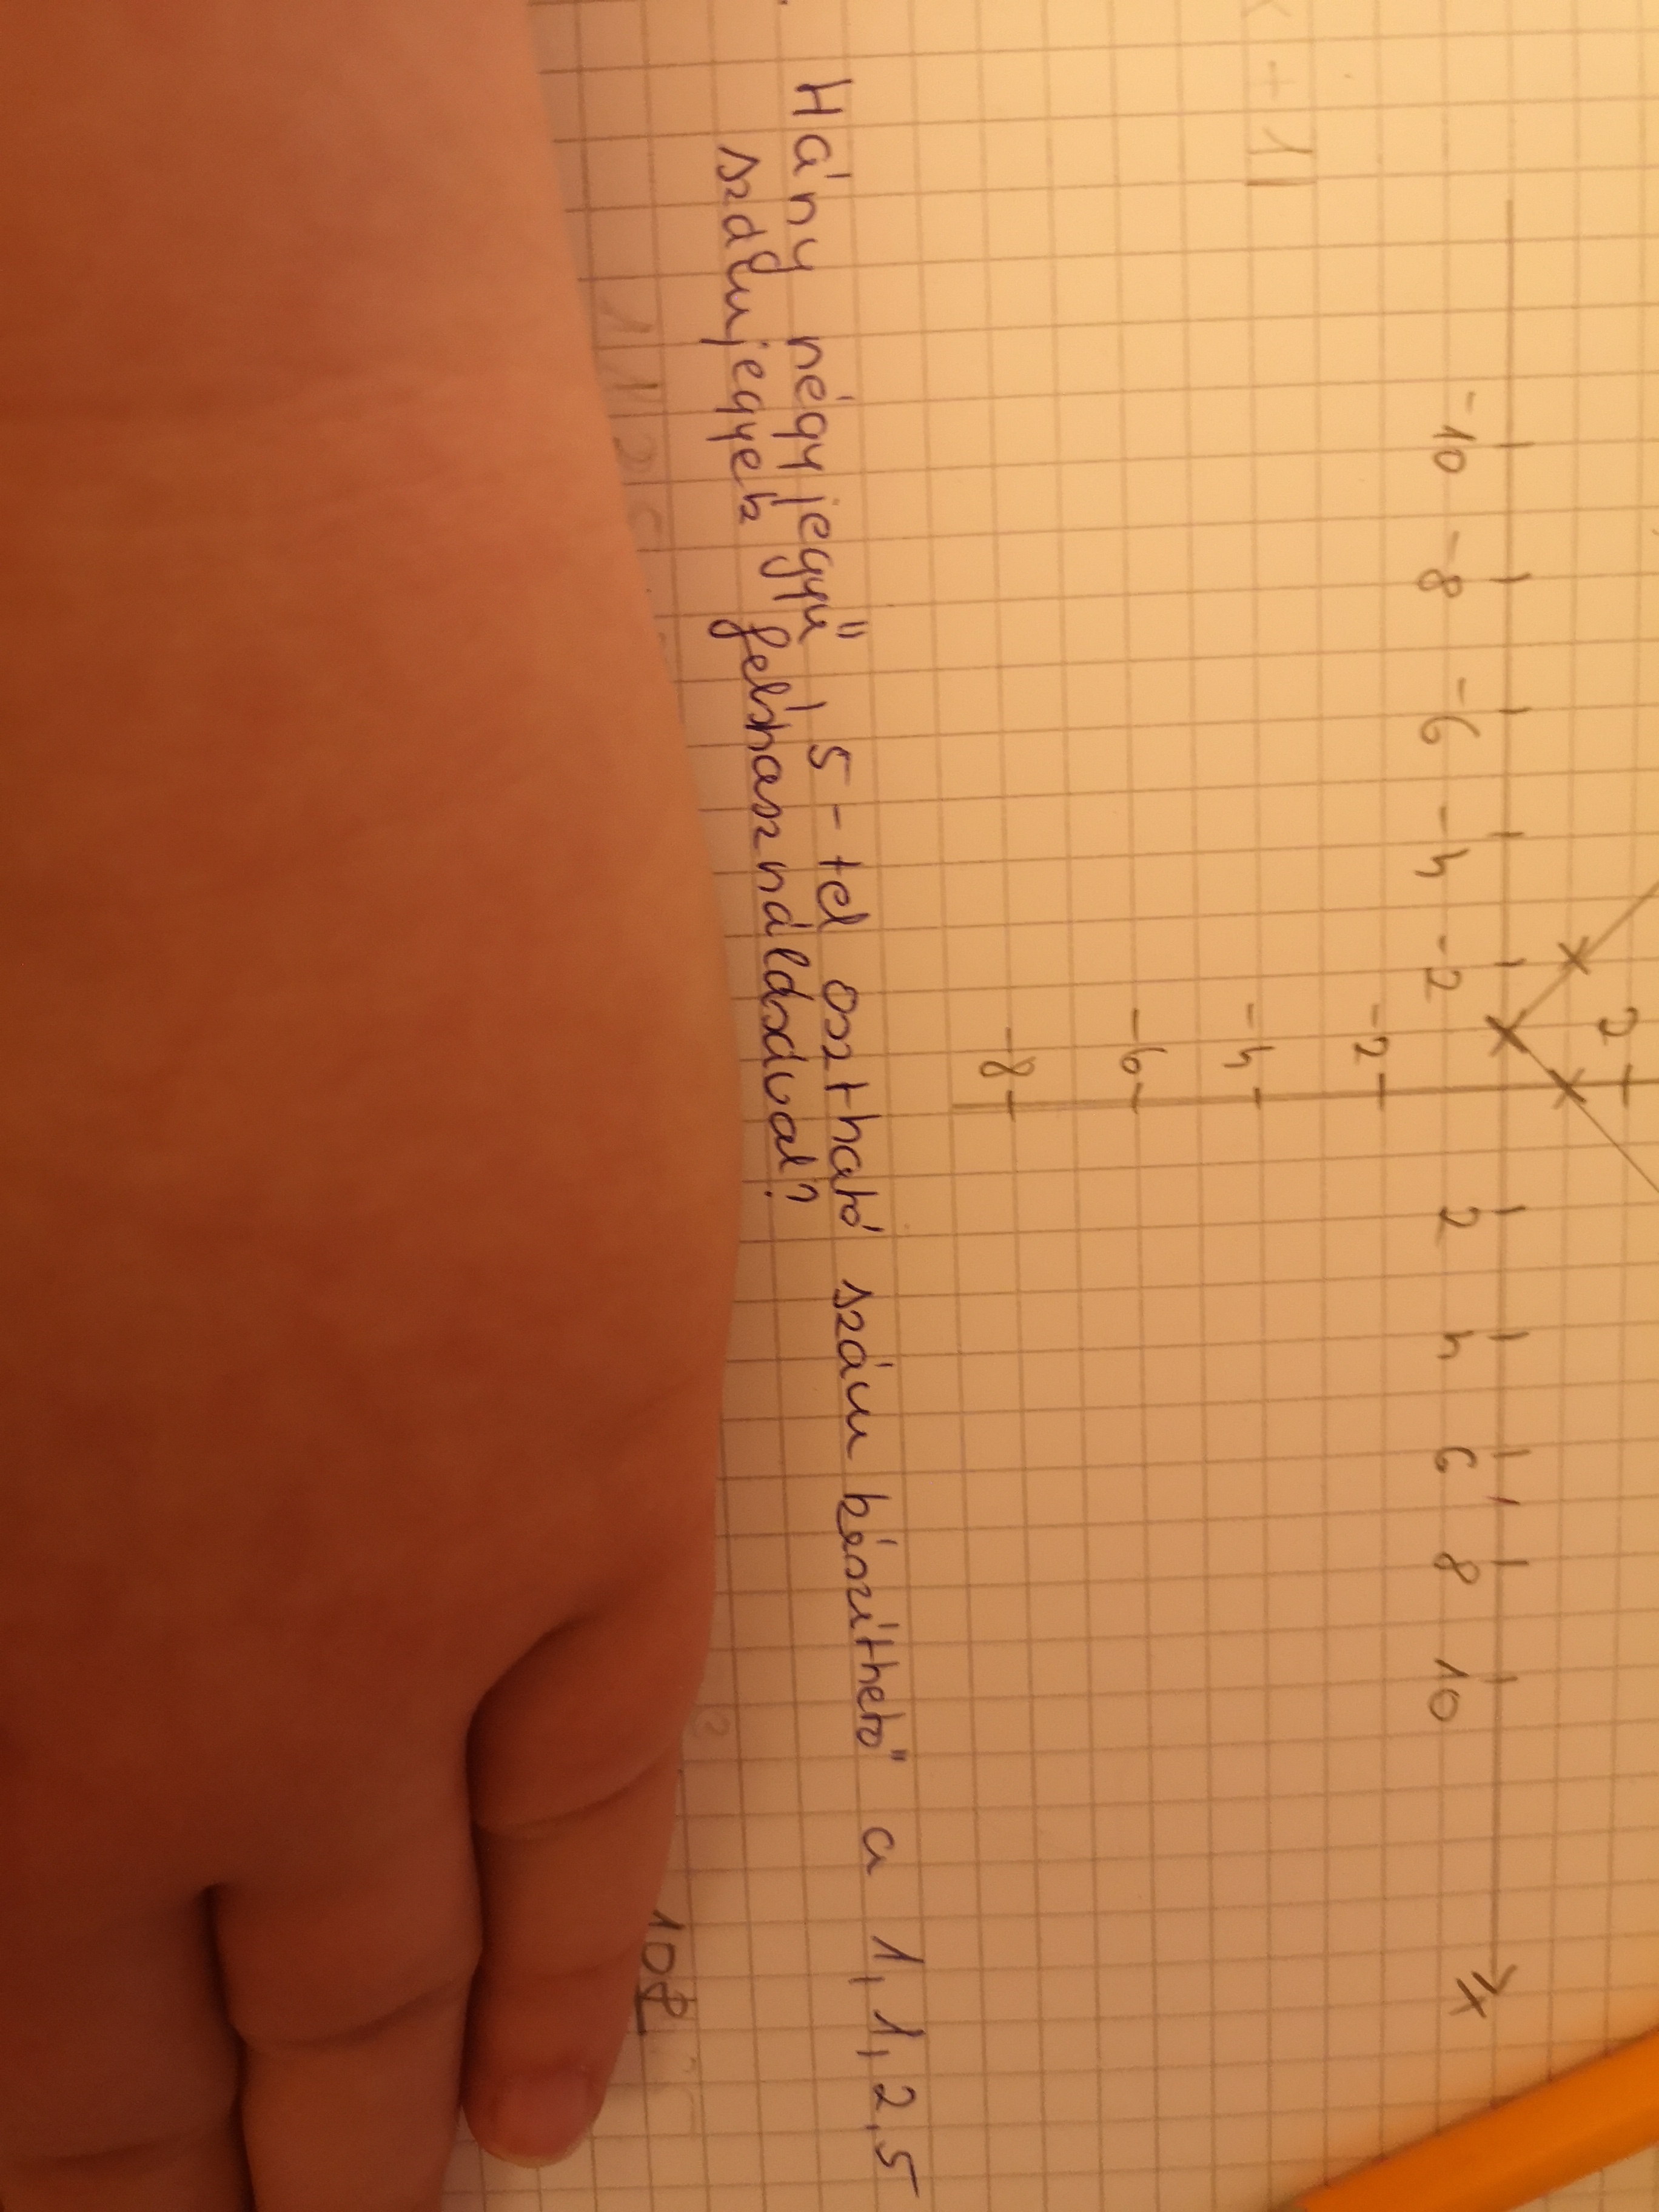 x + 1|
-10 -8 -6 -4 -2 2 4 6 8 10 x
2
-2
-4
-6
-8
Hány négyjegyű, 5-tel osztható szám készíthető a 1, 1, 2, 5
számjegyek felhasználásával?